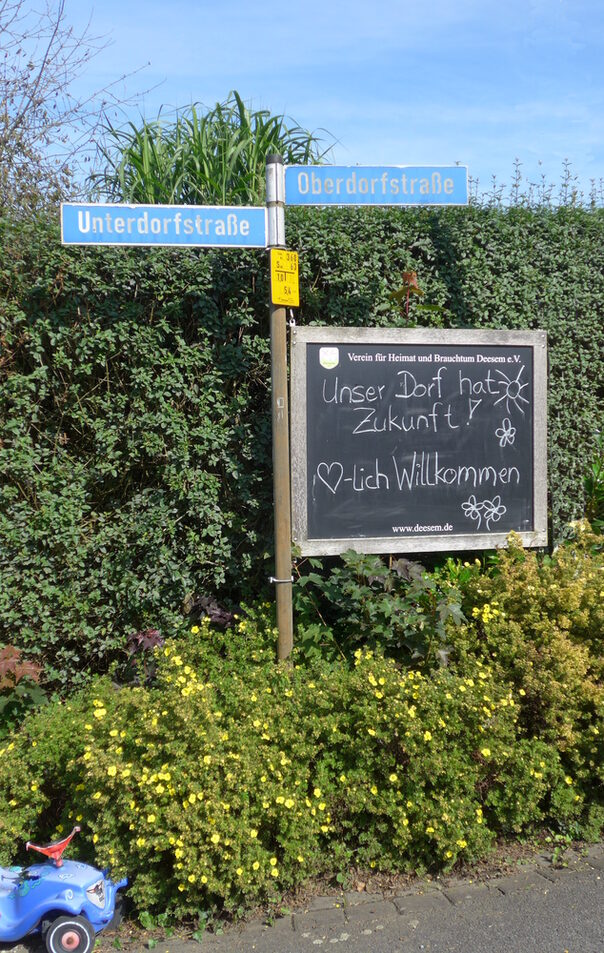 Oberdorfstraße
Unterdorfstraße
Verein für Heimat und Brauchtum Deesem e.V.
Unser Dorf hat
Zukunft!
-lich Willkommen
www.deesem.de